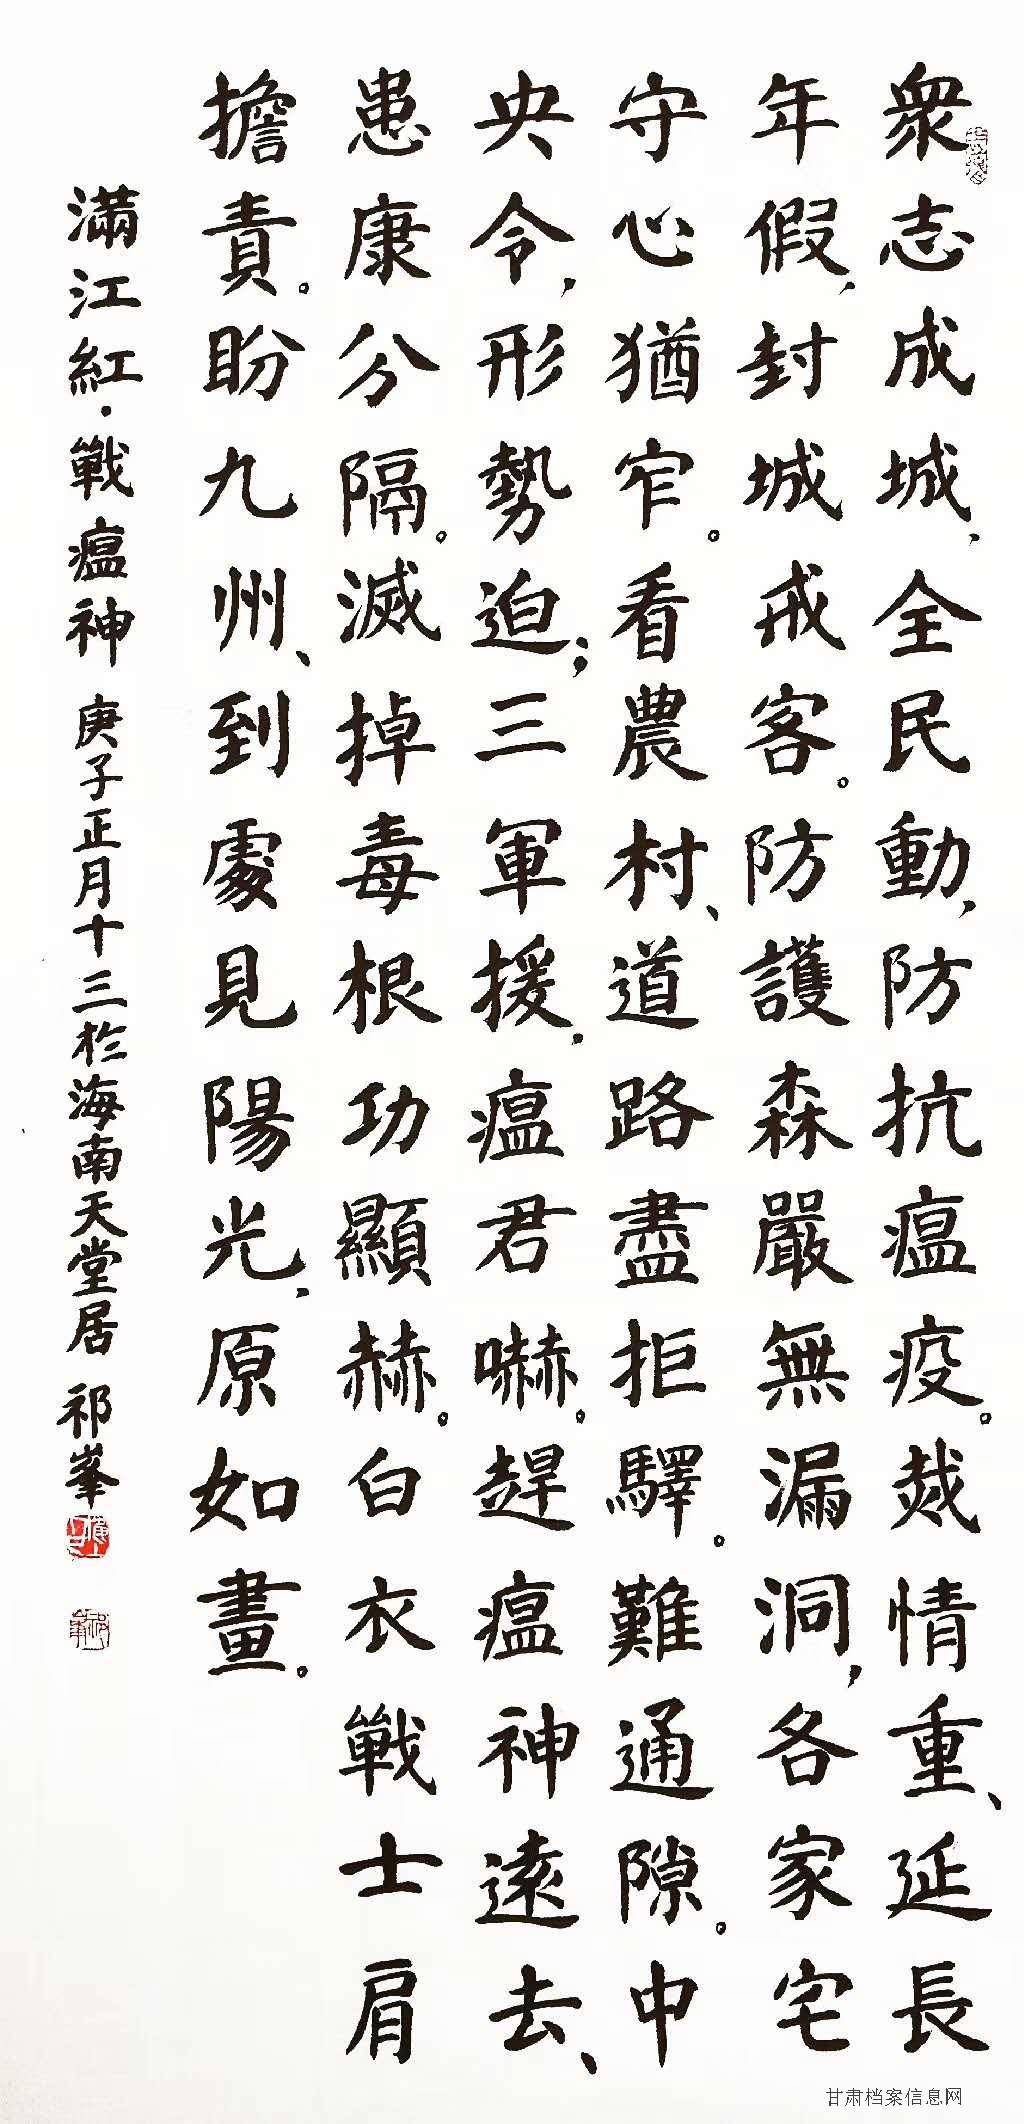 衆志成城，全民動，防抗瘟疫。烖情重、延長
年假，封城戒客。防護森嚴無漏洞，各家宅
守心猶窄。看農村、道路盡拒驛。難通隙。中
央令，形勢迫；三軍援，瘟君嚇。趕瘟神遠去、
患康分隔。滅掉毒根功顯赫。白衣戰士肩
擔責。盼九州、到處見陽光，原如畫。
滿江紅·戰瘟神 庚子正月十三於海南天堂居 祁峯
甘肃档案信息网